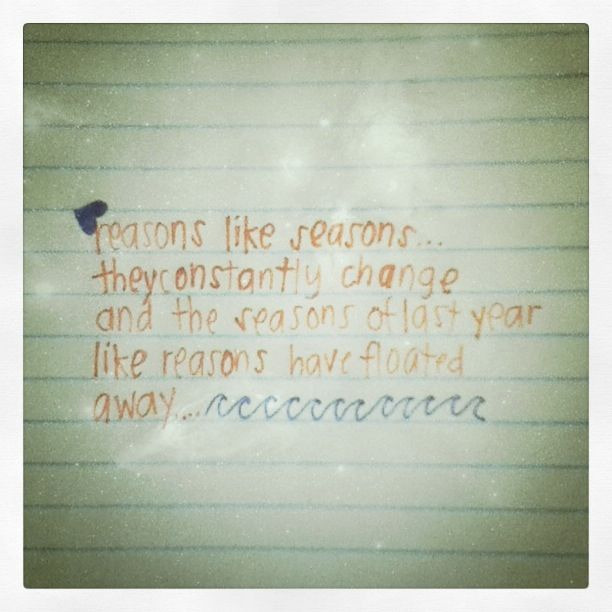 reasons like seasons...
theyconstantly change
and the seasons of last year
like reasons have floated
away...